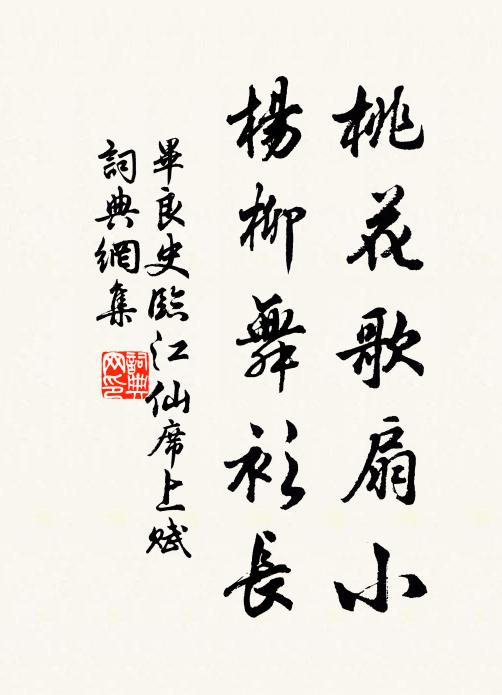 桃花歌扇小
楊柳舞衫長
畢良史臨江仙席上賦
詞典網集
詞典网印